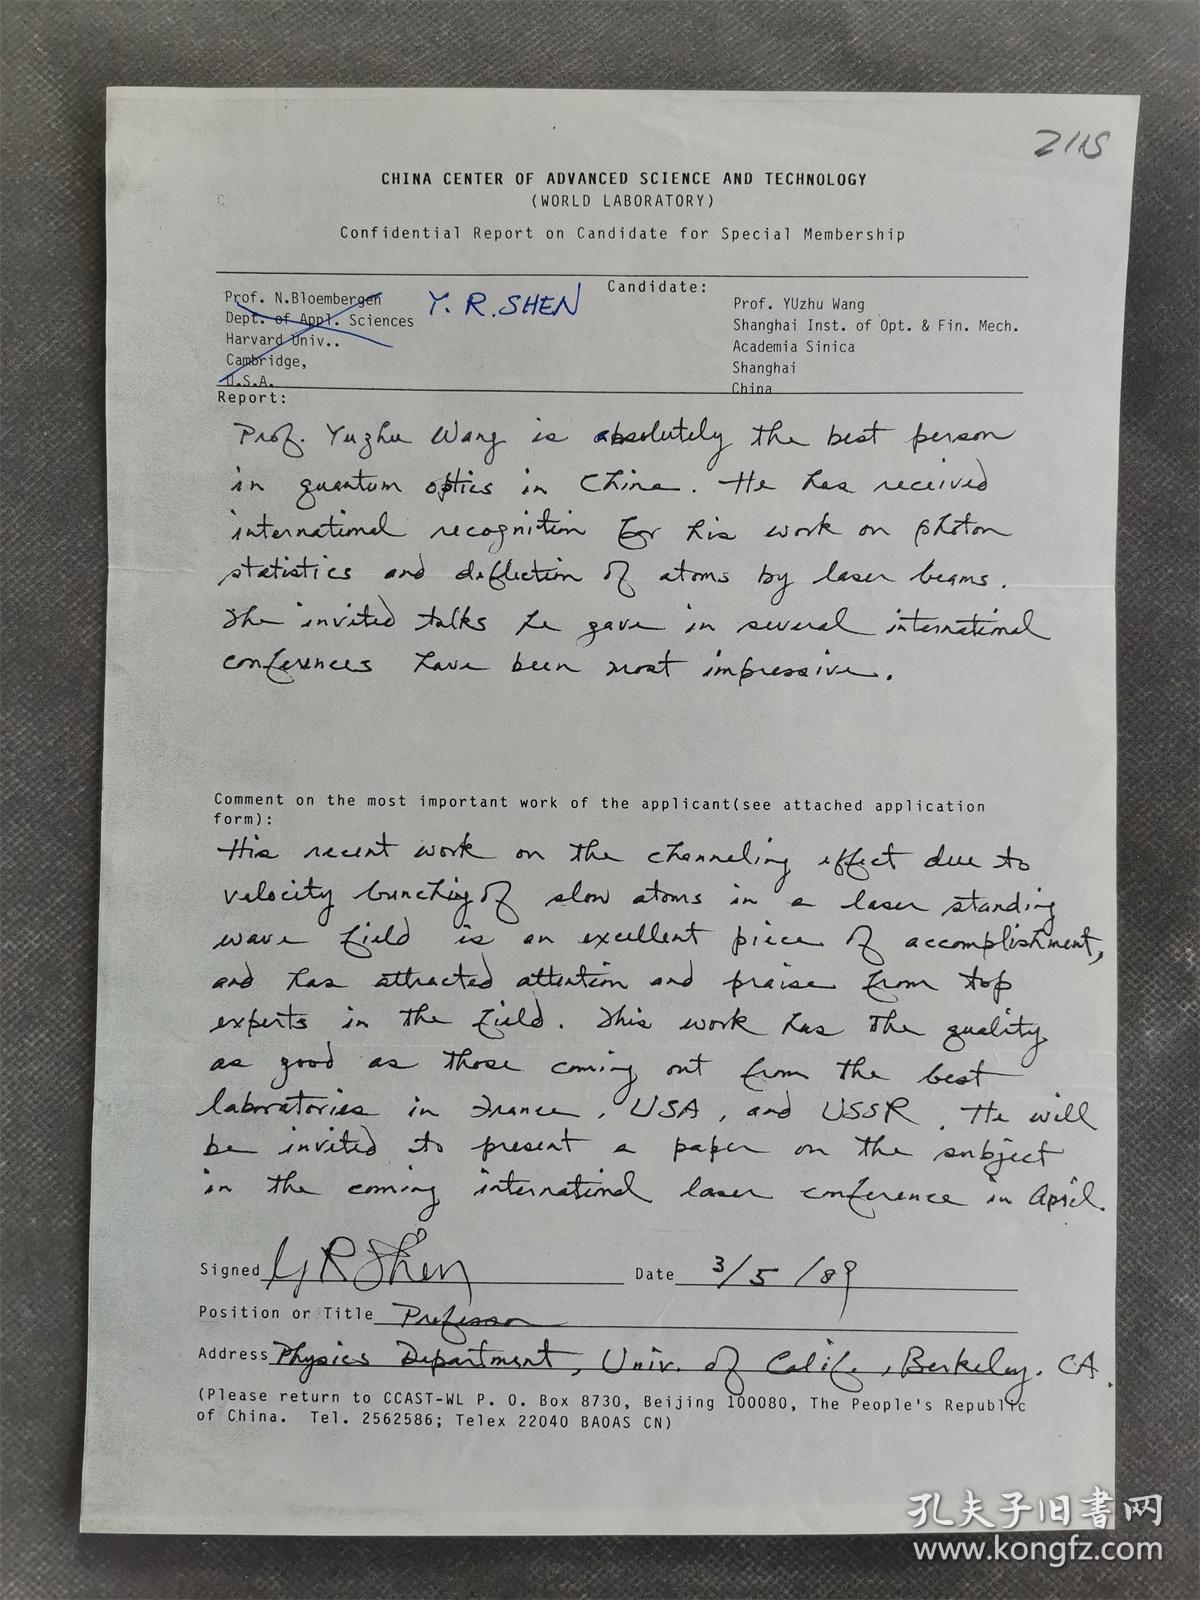 2115
CHINA CENTER OF ADVANCED SCIENCE AND TECHNOLOGY
(WORLD LABORATORY)
Confidential Report on Candidate for Special Membership
Prof. N.Bloembergen
Dept. of Appl. Sciences
Harvard Univ..
Cambridge,
U.S.A.
Y. R. SHEN
Candidate:
Prof. YUzhu Wang
Shanghai Inst. of Opt. & Fin. Mech.
Academia Sinica
Shanghai
China
Report:
Prof. Yuzhu Wang is absolutely the best person
in quantum optics in China. He has received
international recognition for his work on photon
statistics and deflection of atoms by laser beams.
The invited talks he gave in several international
conferences have been most impressive.
Comment on the most important work of the applicant(see attached application
form):
His recent work on the channeling effect due to
velocity bunching of slow atoms in a laser standing
wave field is an excellent piece of accomplishment,
and has attracted attention and praise from top
experts in the field. This work has the quality
as good as those coming out from the best
laboratories in France, USA, and USSR. He will
be invited to present a paper on the subject
in the coming international laser conference in April.
Signed Y R Shen Date 3/5/89
Position or Title Professor
Address Physics Department, Univ. of Calif., Berkeley. CA.
(Please return to CCAST-WL P. O. Box 8730, Beijing 100080, The People's Republic
of China. Tel. 2562586; Telex 22040 BAOAS CN)
孔夫子旧书网
www.kongfz.com